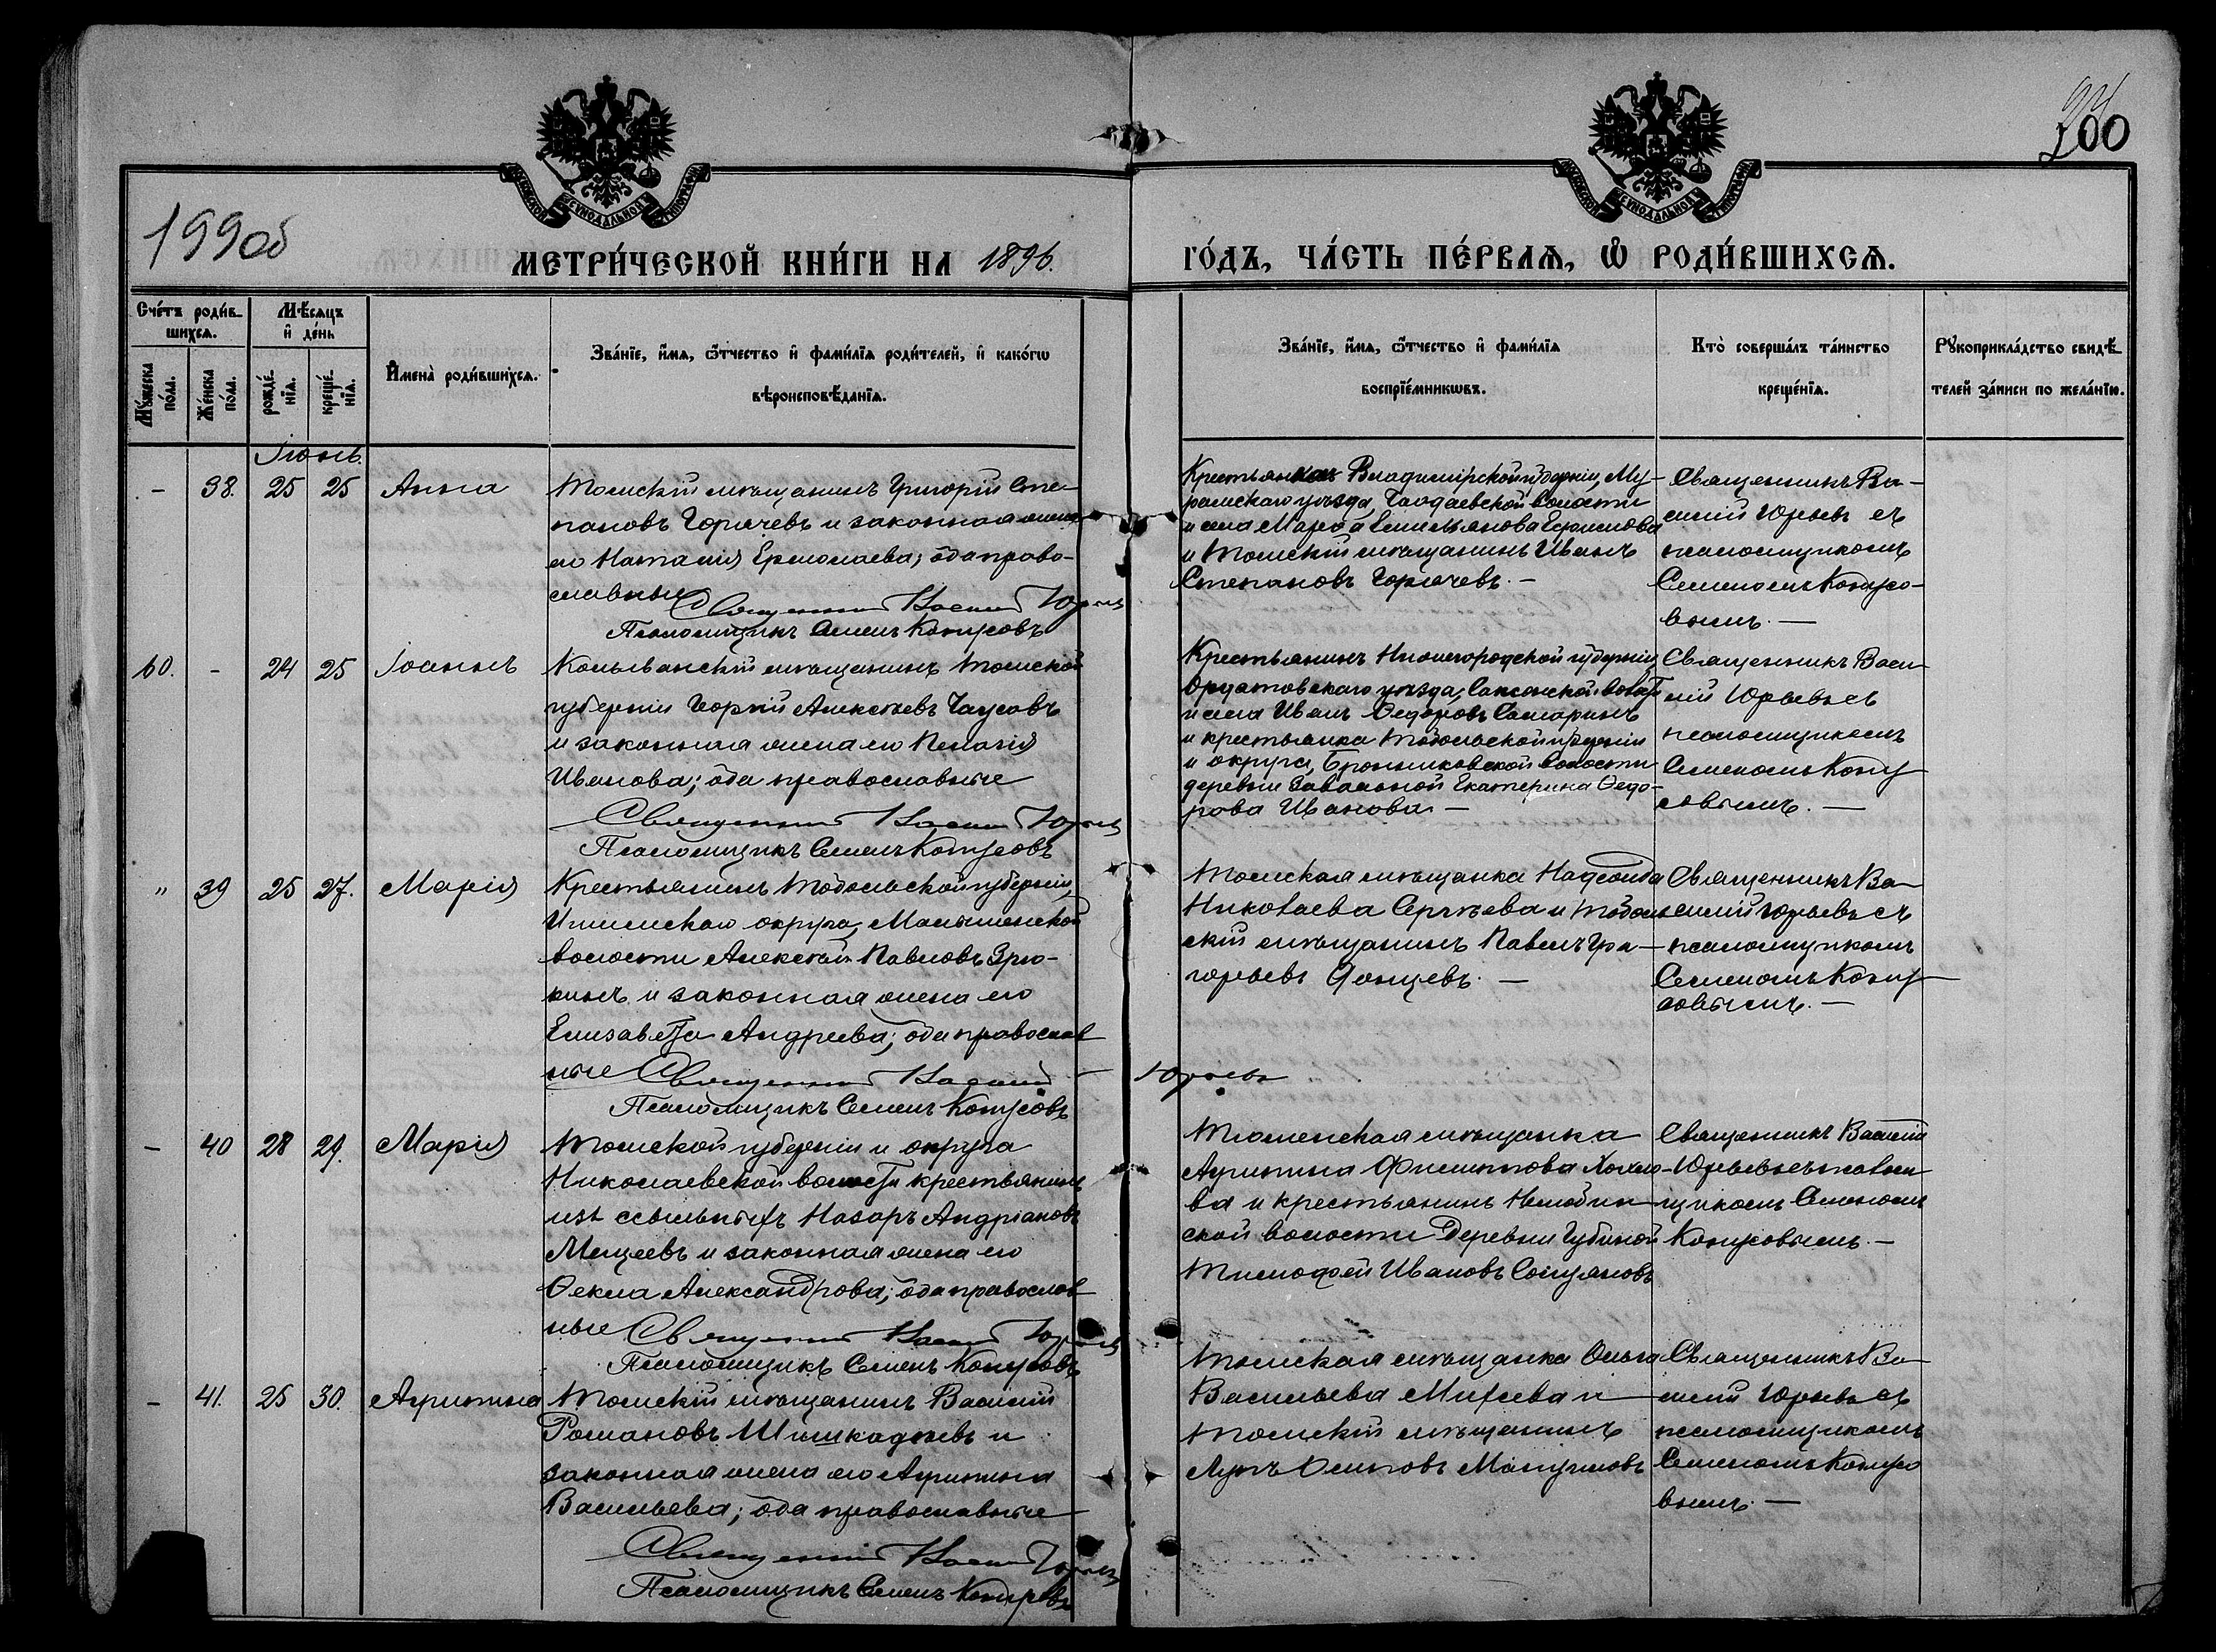 200
199об
МЕТРИ́ЧЕСКОЙ КНИ́ГИ НА 1896.
ГО́ДЪ, ЧА́СТЬ ПЕ́РВАѦ, Ѡ҆ РОДИ́ВШИХСѦ.
Сче́тъ роди́в-
шихсѧ.
Му́жеска по́ла.
Же́нска по́ла.
Мѣ́сѧцъ
и҆ де́нь
рожде́-
нїѧ.
креще́-
нїѧ.
И҆мена̀ роди́вшихсѧ.
Зва́нїе, и҆́мѧ, ѻ҆́тчество и҆ фами́лїѧ роди́телей, и҆ како́гѡ
вѣроисповѣ́данїѧ.
Зва́нїе, и҆́мѧ, ѻ҆́тчество и҆ фами́лїѧ
воспрїе́мникѡвъ.
Кто̀ соверша́лъ та́инство
креще́нїѧ.
Рꙋкоприкла́дство свидѣ́-
телей за́писи по жела́нїю.
Іюнь.
- 38. 25 25 Анна
Томскій мѣщанинъ Григорій Сте-
пановъ Горячевъ и законная жена
его Наталія Ермолаева; оба право-
славные
Священникъ Василій Юрьевъ
Псаломщикъ Семенъ Конусовъ
Владимірской губерніи, Му-
ромскаго уѣзда, волости
и села Марѳа Емельянова
и Томскій мѣщанинъ Иванъ
Степановъ Горячевъ. -
Священникъ Ва-
силій Юрьевъ съ
псаломщикомъ
Семеномъ Конусо-
вымъ. -
60. - 24 25 Іоаннъ
Колыванскій мѣщанинъ Томской
губерніи Георгій Алексѣевъ Чаусовъ
и законная жена его Пелагія
Иванова; оба православные
Священникъ Василій Юрьевъ
Псаломщикъ Семенъ Конусовъ
Крестьянинъ Нижегородской губерніи
уѣзда,
и села Иванъ Ѳедоровъ Самаринъ
и крестьянка Тобольской губерніи
и округа, Бронниковской волости
деревни Завальной Екатерина Ѳедо-
рова Иванова -
Священникъ Васи-
лій Юрьевъ съ
псаломщикомъ
Семеномъ Кону-
совымъ. -
" 39 25 27. Марія
Крестьянинъ Тобольской губерніи,
Ишимскаго округа, Малышенской
волости Алексѣй Павловъ Зрю-
кинъ и законная жена его
Елизавета Андреева; оба православ
ные Священникъ Василій Юрьевъ
Псаломщикъ Семенъ Конусовъ
Томская мѣщанка
Николаева Сергѣева и Тоболь
скій мѣщанинъ Павелъ Гри-
горьевъ Донцевъ. -
Священникъ Ва-
силій Юрьевъ съ
псаломщикомъ
Семеномъ Кону-
совымъ. -
- 40 28 29. Марія
Томской губерніи и округа
Николаевской волости крестьянинъ
изъ ссыльныхъ Назаръ Андріановъ
Мещеевъ и законная жена его
Ѳекла Александрова; оба православ
ные Священникъ Василій Юрьевъ
Псаломщикъ Семенъ Конусовъ
Тюменская мѣщанка
Агрипина Филиппова
ва и крестьянинъ
ской волости деревни Губиной
Тимофей Ивановъ
Священникъ Василій
Юрьевъ съ псалом
щикомъ Семеномъ
Конусовымъ. -
- 41. 25 30. Агрипина
Томскій мѣщанинъ Василій
Романовъ Шишкадѣевъ и
законная жена его Агрипина
Васильева; оба православные
Священникъ Василій Юрьевъ
Псаломщикъ Семенъ Конусовъ
Томская мѣщанка Ольга
Васильева Михеева и
Томскій мѣщанинъ
Осиповъ
Священникъ Ва-
силій Юрьевъ съ
псаломщикомъ
Семеномъ Конусо
вымъ. -